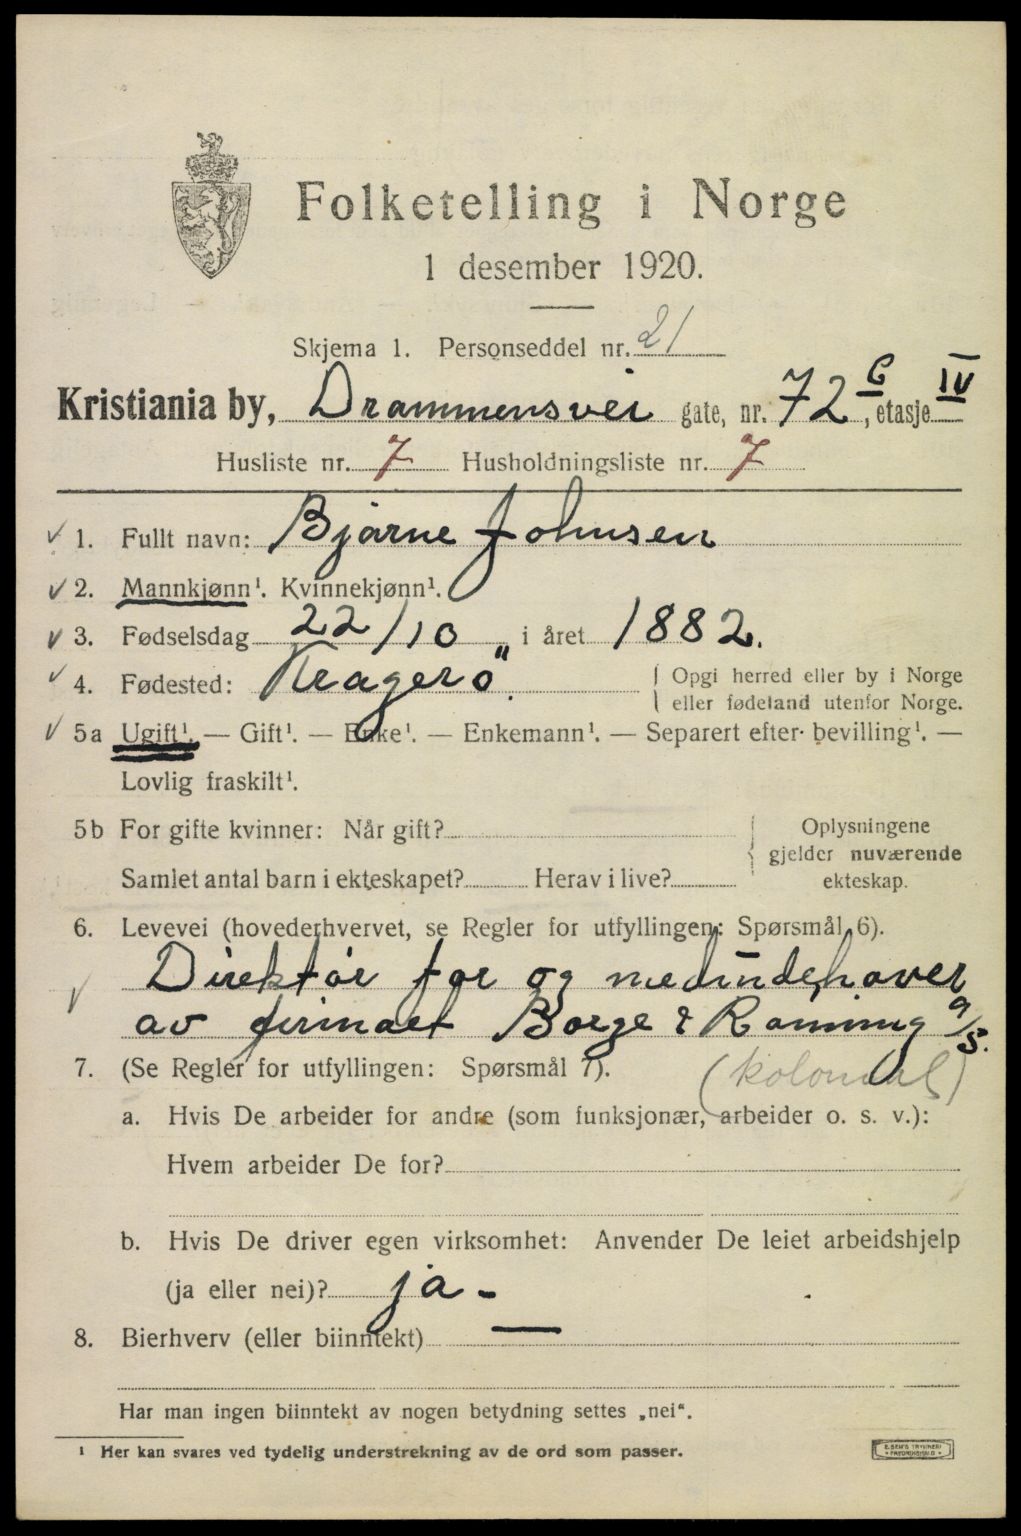 Folketelling i Norge
1 desember 1920.
Skjema 1. Personseddel nr. 21
Kristiania by, Drammensvei gate, nr. 72 C, etasje IV
Husliste nr. 7 Husholdningsliste nr. 7
1. Fullt navn: Bjarne Johnsen
2. Mannkjønn¹. Kvinnekjønn¹.
3. Fødselsdag 22/10 i året 1882.
4. Fødested: Kragerö. Opgi herred eller by i Norge
eller fødeland utenfor Norge.
5a Ugift¹. — Gift¹. — Enke¹. — Enkemann¹. — Separert efter bevilling¹. —
Lovlig fraskilt¹.
5b For gifte kvinner: Når gift? Oplysningene
gjelder nuværende
Samlet antal barn i ekteskapet? Herav i live? ekteskap.
6. Levevei (hovederhvervet, se Regler for utfyllingen: Spørsmål 6).
Direktør for og medindehaver
av firmaet Borge & Rönning a/s.
7. (Se Regler for utfyllingen: Spørsmål 7). (kolonial)
a. Hvis De arbeider for andre (som funksjonær, arbeider o. s. v.):
Hvem arbeider De for?
b. Hvis De driver egen virksomhet: Anvender De leiet arbeidshjelp
(ja eller nei)? ja -
8. Bierhverv (eller biinntekt) —
Har man ingen biinntekt av nogen betydning settes „nei“.
¹ Her kan svares ved tydelig understrekning av de ord som passer.